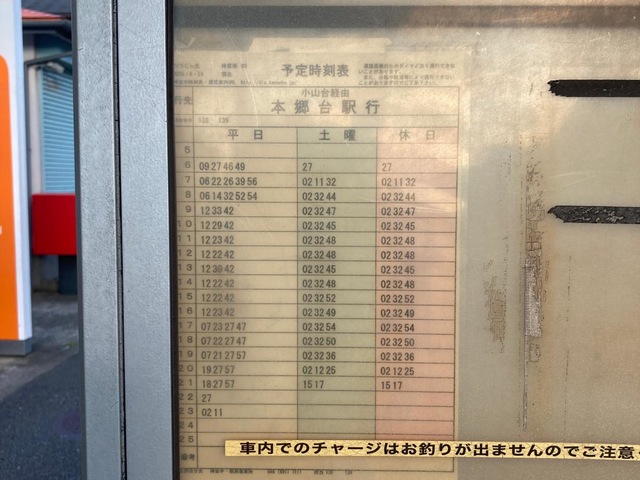 予定時刻表
行先
小山台経由
本郷台駅行
平日 土曜 休日
5
6 09 27 46 49 27 27
7 06 22 26 39 56 02 11 32 02 11 32
8 06 14 32 52 54 02 32 44 02 32 44
9 12 33 42 02 32 47 02 32 47
10 12 29 42 02 32 45 02 32 45
11 12 23 42 02 32 48 02 32 48
12 12 22 42 02 32 48 02 32 48
13 12 30 42 02 32 45 02 32 45
14 12 22 42 02 32 48 02 32 48
15 12 22 42 02 32 52 02 32 52
16 12 23 42 02 32 49 02 32 49
17 07 23 27 47 02 32 54 02 32 54
18 07 22 27 47 02 32 50 02 32 50
19 07 21 27 57 02 32 36 02 32 36
20 19 27 57 02 12 25 02 12 25
21 18 27 57 15 17 15 17
22 27
23 02 11
24
25
備考
車内でのチャージはお釣りが出ませんのでご注意